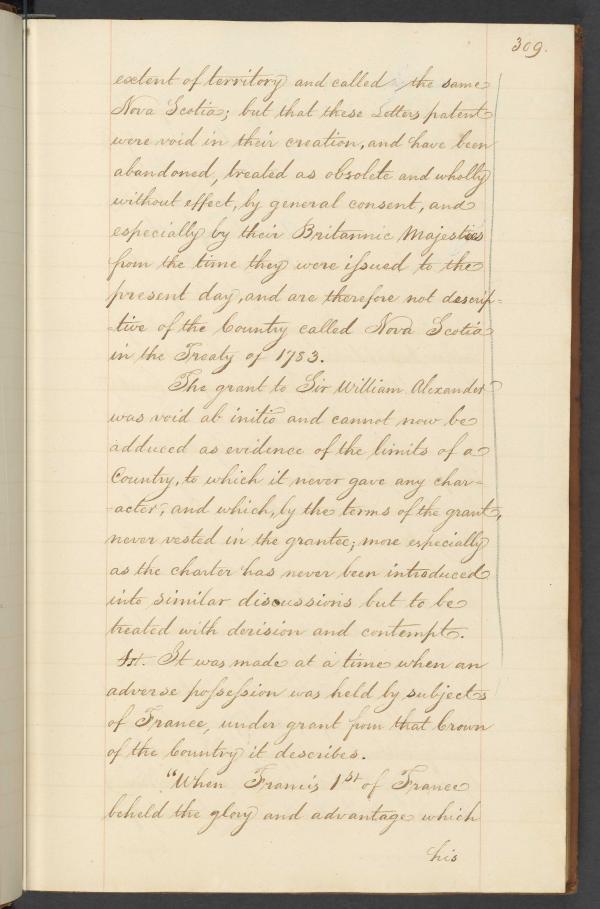 309.
extent of territory and called the same
Nova Scotia; but that these Letters patent
were void in their creation, and have been
abandoned, treated as obsolete and wholly
without effect, by general consent, and
especially by their Britannic Majesties
from the time they were issued to the
present day, and are therefore not descrip-
-tive of the Country called Nova Scotia
in the Treaty of 1783.
The grant to Sir William Alexander
was void ab initio and cannot now be
adduced as evidence of the limits of a
Country, to which it never gave any char-
-acter; and which, by the terms of the grant,
never vested in the grantee; more especially
as the charter has never been introduced
into similar discussions but to be
treated with derision and contempt.
1st. It was made at a time when an
adverse possession was held by subjects
of France, under grant from that Crown
of the Country it describes.
"When Francis 1st of France
beheld the glory and advantage which
his